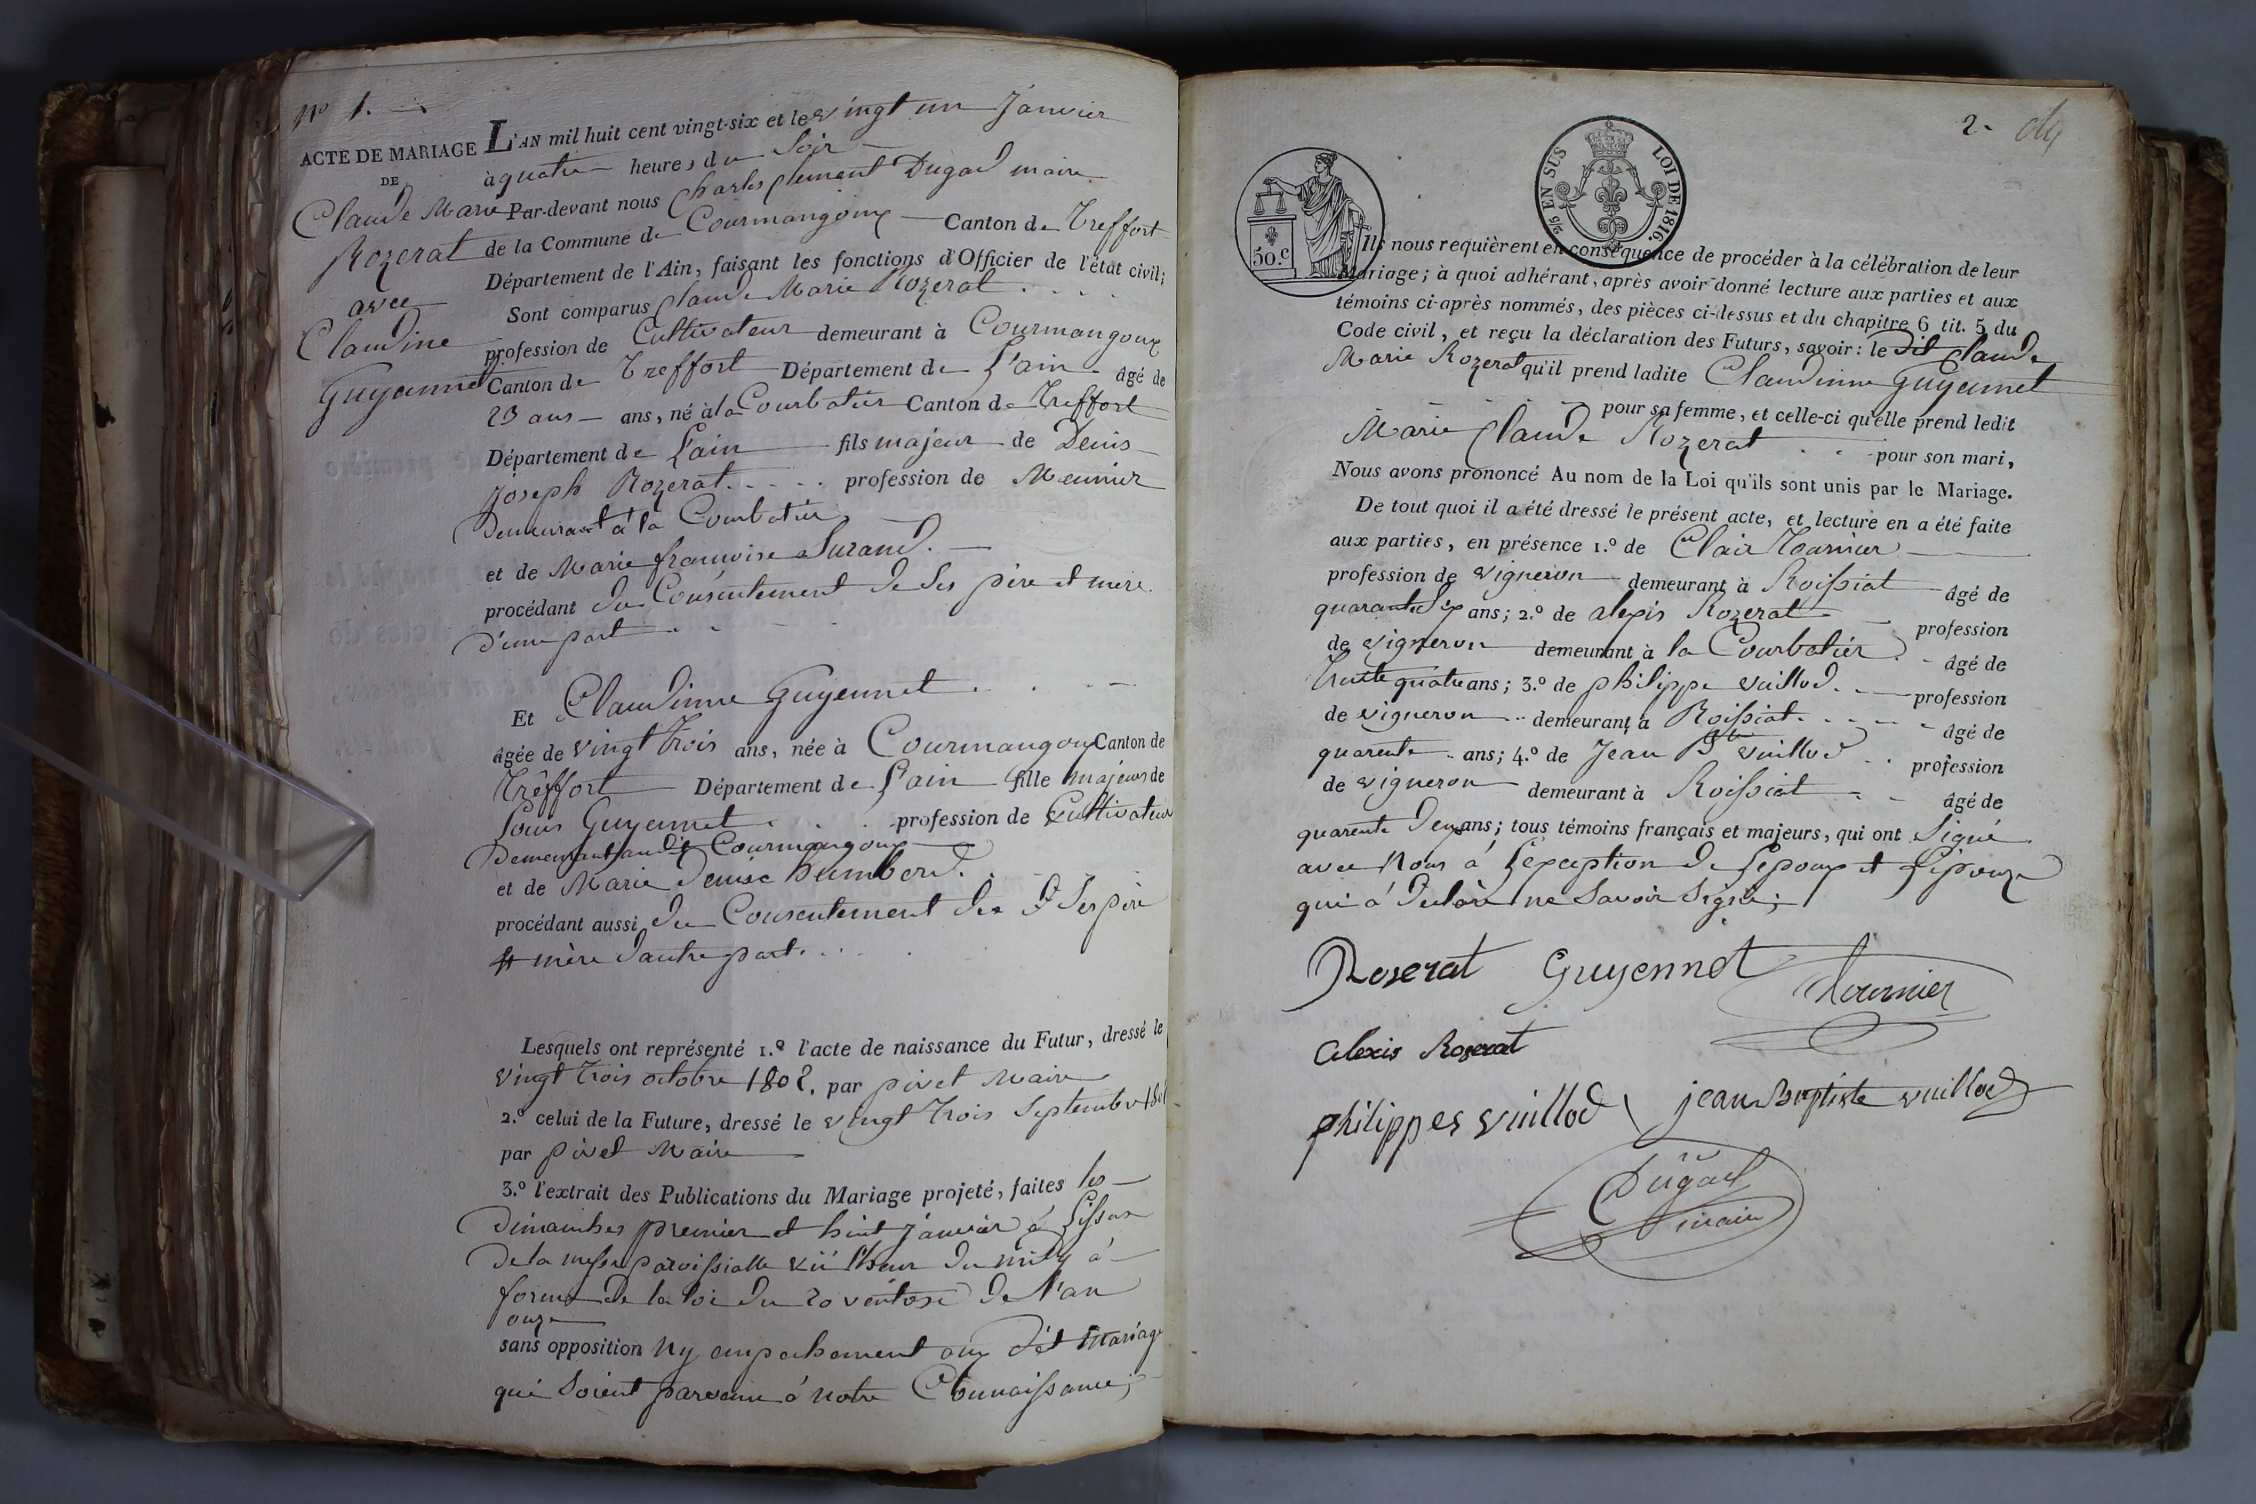 No 1.
ACTE DE MARIAGE
DE
Claude Marie
Rozerat
avec
Claudine
Guyennet
L'AN mil huit cent vingt-six et le vingt un Janvier
à quatre heures du Soir
Par-devant nous Charles Clement Dugad maire
de la Commune de Courmangoux Canton de Treffort
Département de l'Ain, faisant les fonctions d'Officier de l'état civil;
Sont comparus Claude Marie Rozerat
profession de Cultivateur demeurant à Courmangoux
Canton de Treffort Département de L'ain âgé de
23 ans ans, né à la Courbatier Canton de Treffort
Département de L'ain fils majeur de Denis
Joseph Rozerat profession de Meunier
Demeurant à la Courbatier
et de Marie françoise Surand.
procédant du Consentement de Ses père et mère
d'une part
Et Claudinne Guyennet
âgée de vingt trois ans, née à Courmangoux Canton de
Trèffort Département de L'ain fille majeure de
Louis Guyennet profession de Cultivateur
Demeurant audit Courmangoux
et de Marie Denise humberd.
procédant aussi du Consentement de Ses père
et mère d'autre part.
Lesquels ont représenté 1.º l'acte de naissance du Futur, dressé le
vingt trois octobre 1802. par pivet Maire
2.º celui de la Future, dressé le vingt trois Septembre
par pivet Maire
3.º l'extrait des Publications du Mariage projeté, faites les
Dimanches premier et huit janvier à L'issue
De la messe paroissialle à
forme de la loi du 20 ventose De l'an
onze
sans opposition ny empechement aux dit Mariage
qui Soient parvenu à notre Connaissance;
2.
50.C
25 EN SUS LOI DE 1816.
Ils nous requièrent en conséquence de procéder à la célébration de leur
Mariage; à quoi adhérant, après avoir donné lecture aux parties et aux
témoins ci-après nommés, des pièces ci-dessus et du chapitre 6 tit. 5 du
Code civil, et reçu la déclaration des Futurs, savoir: le dit Claude
Marie Rozerat qu'il prend ladite Claudinne Guyennet
pour sa femme, et celle-ci qu'elle prend ledit
Marie Claude Rozerat pour son mari,
Nous avons prononcé Au nom de la Loi qu'ils sont unis par le Mariage.
De tout quoi il a été dressé le présent acte, et lecture en a été faite
aux parties, en présence 1.º de Clair Tournier
profession de vigneron demeurant à Roissiat âgé de
quarante Six ans; 2.º de alexis Rozerat profession
de vigneron demeurant à la Courbatier âgé de
Trente quatre ans; 3.º de philippe vuillod profession
de vigneron demeurant à Roissiat âgé de
quarente ans; 4.º de Jean Bte vuillod profession
de vigneron demeurant à Roissiat âgé de
quarente deux ans; tous témoins français et majeurs, qui ont Signé
avec Nous à L'exception de Lepoux et Lepouze
qui à Declaré ne Savoir Signé;
Roserat Guyennet Tournier
Alexis Roserat
philippes vuillod jean Baptiste vuillod
Dugad
maire